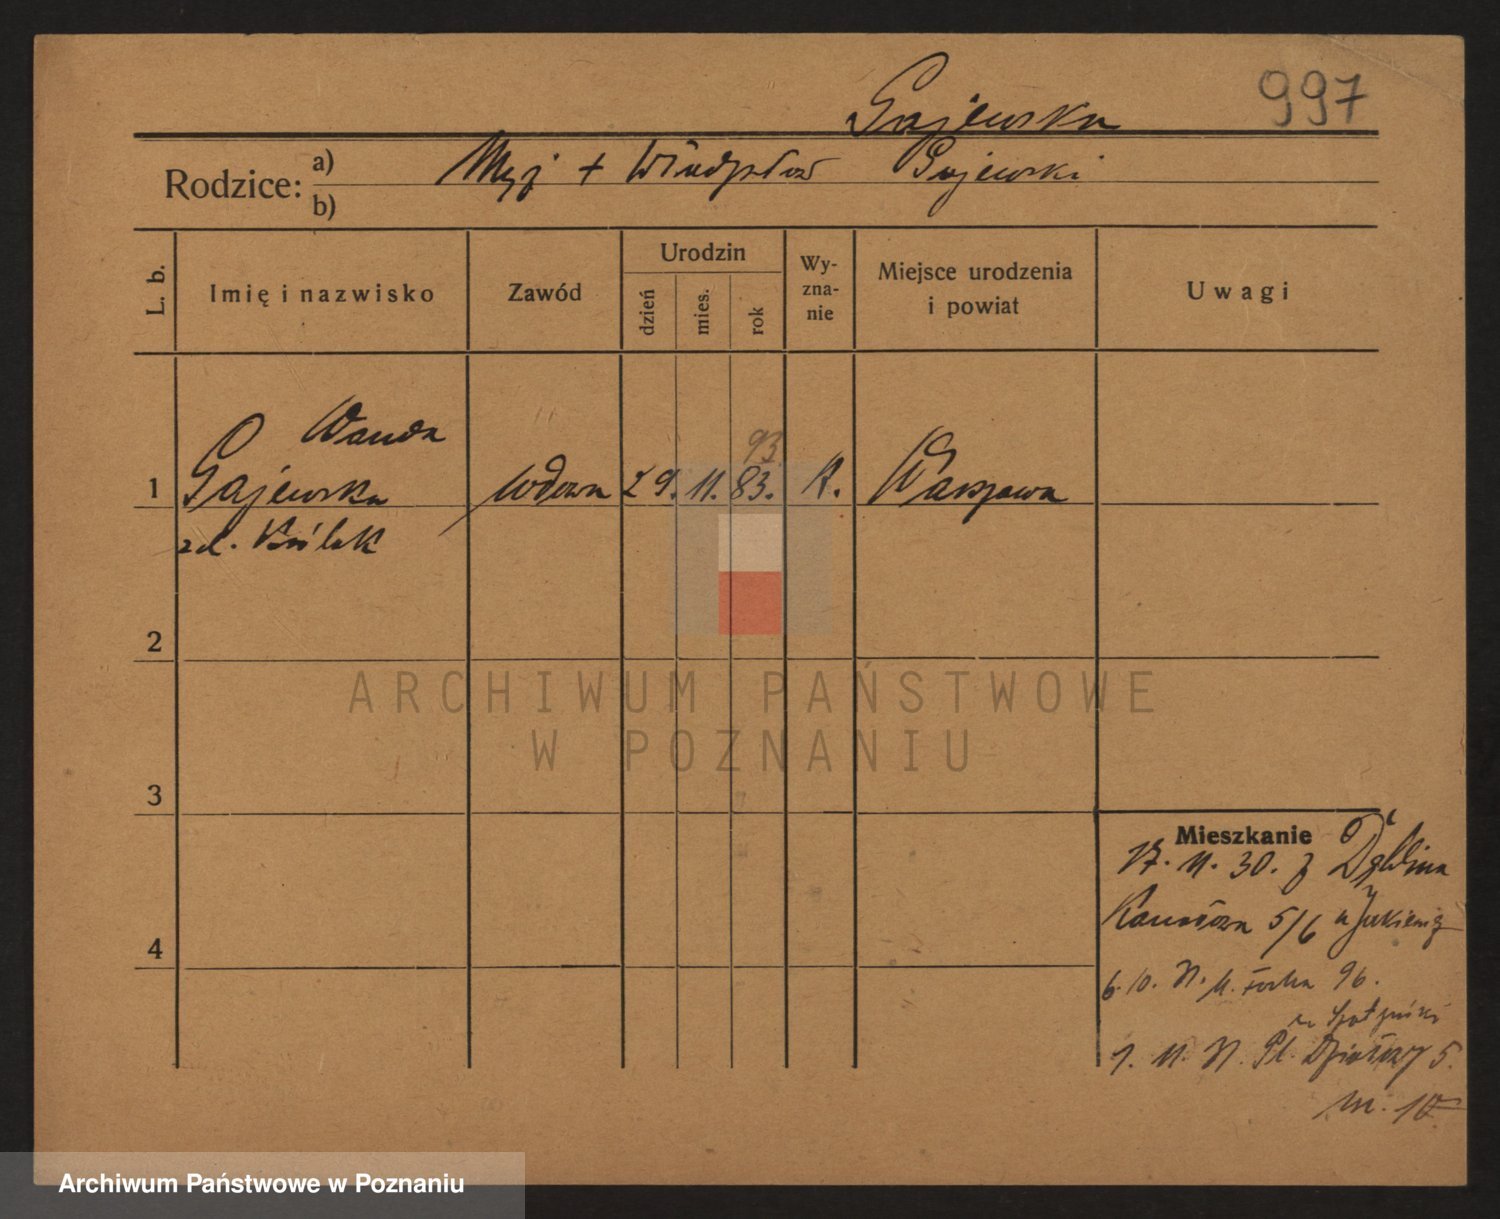 997
Gajewska
Rodzice:
a) Mąż + Władysław Gajewski
b)
L. b.
Imię i nazwisko
Zawód
Urodzin
dzień
mies.
rok
Wy-
zna-
nie
Miejsce urodzenia
i powiat
Uwagi
Wanda
93
1 Gajewska wdowa 29. 11. 83. K. Warszawa
zd. Królak
2
3
4
Mieszkanie
17. 11. 30. z Dęblina
5/6 u
6. 10. 96.
u
Pl. Działowy 5.
m. 10
ARCHIWUM PAŃSTWOWE
W POZNANIU
Archiwum Państwowe w Poznaniu